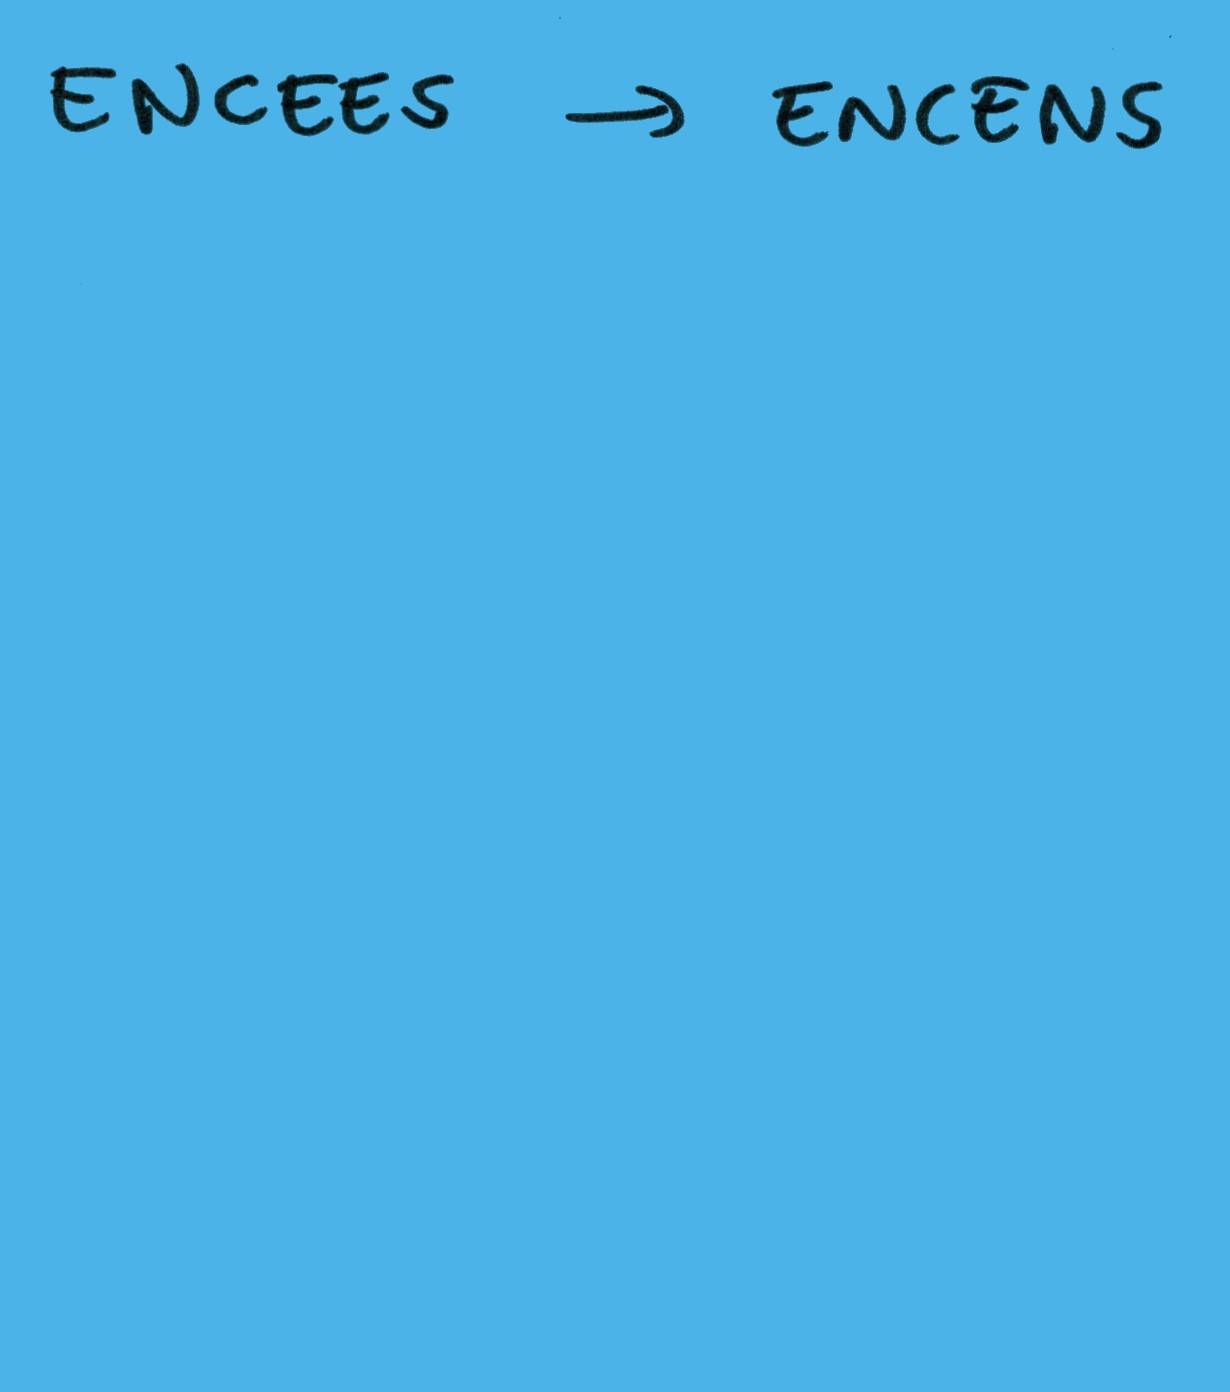 ENCEES → ENCENS